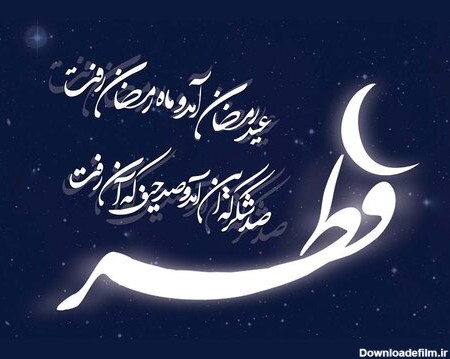 عید رمضان آمد و ماه رمضان رفت
صد شکر که این آمد و صد حیف که آن رفت
فطر
Downloadefilm.ir